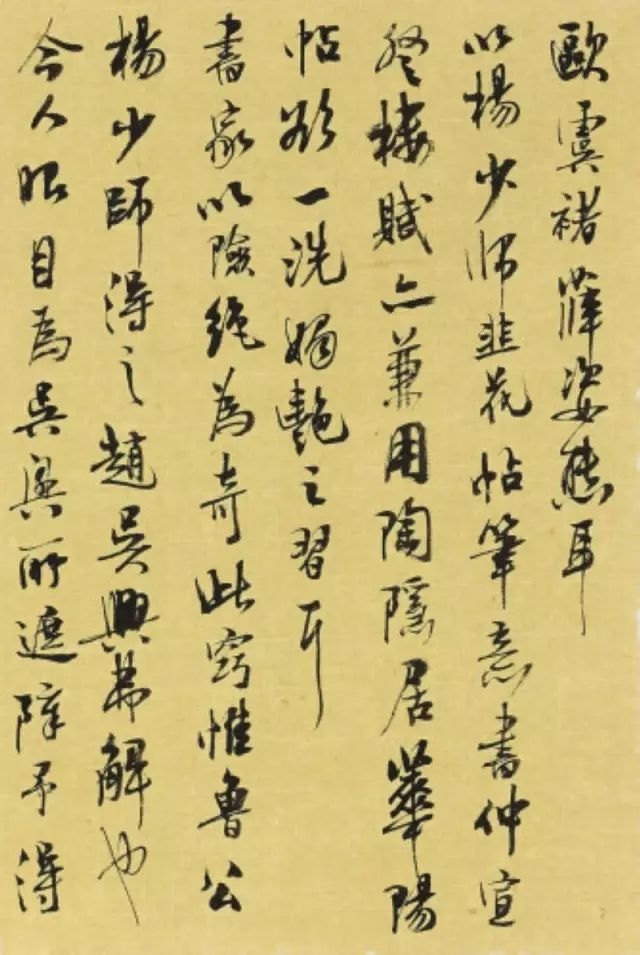 歐虞褚薛姿態耳
以楊少师韭花帖筆意書仲宣
登樓賦亦兼用陶隱居華陽
帖欲一洗媚艷之習耳
書家以險絶為奇此窍惟魯公
楊少師得之趙吳興弗解也
今人眼目為吳興所遮障予得